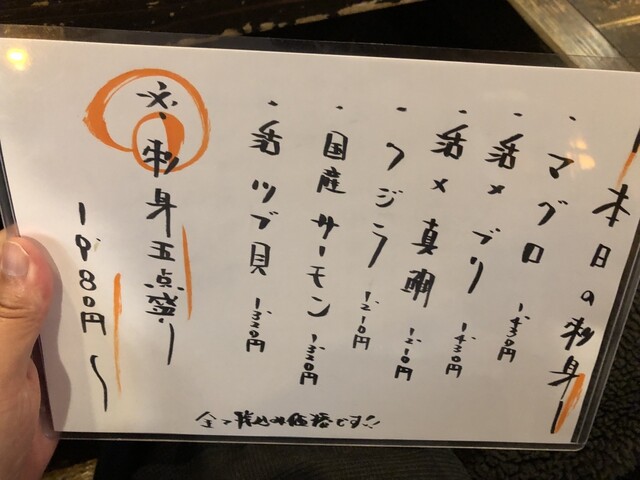 ー本日の刺身ー
・マグロ 1,430円
・活〆ブリ 1,430円
・活〆真鯛 1,210円
・クジラ 1,210円
・国産サーモン 1,320円
・活ツブ貝 1,320円
必・刺身五点盛り
1,980円〜
全て税込み価格です!!